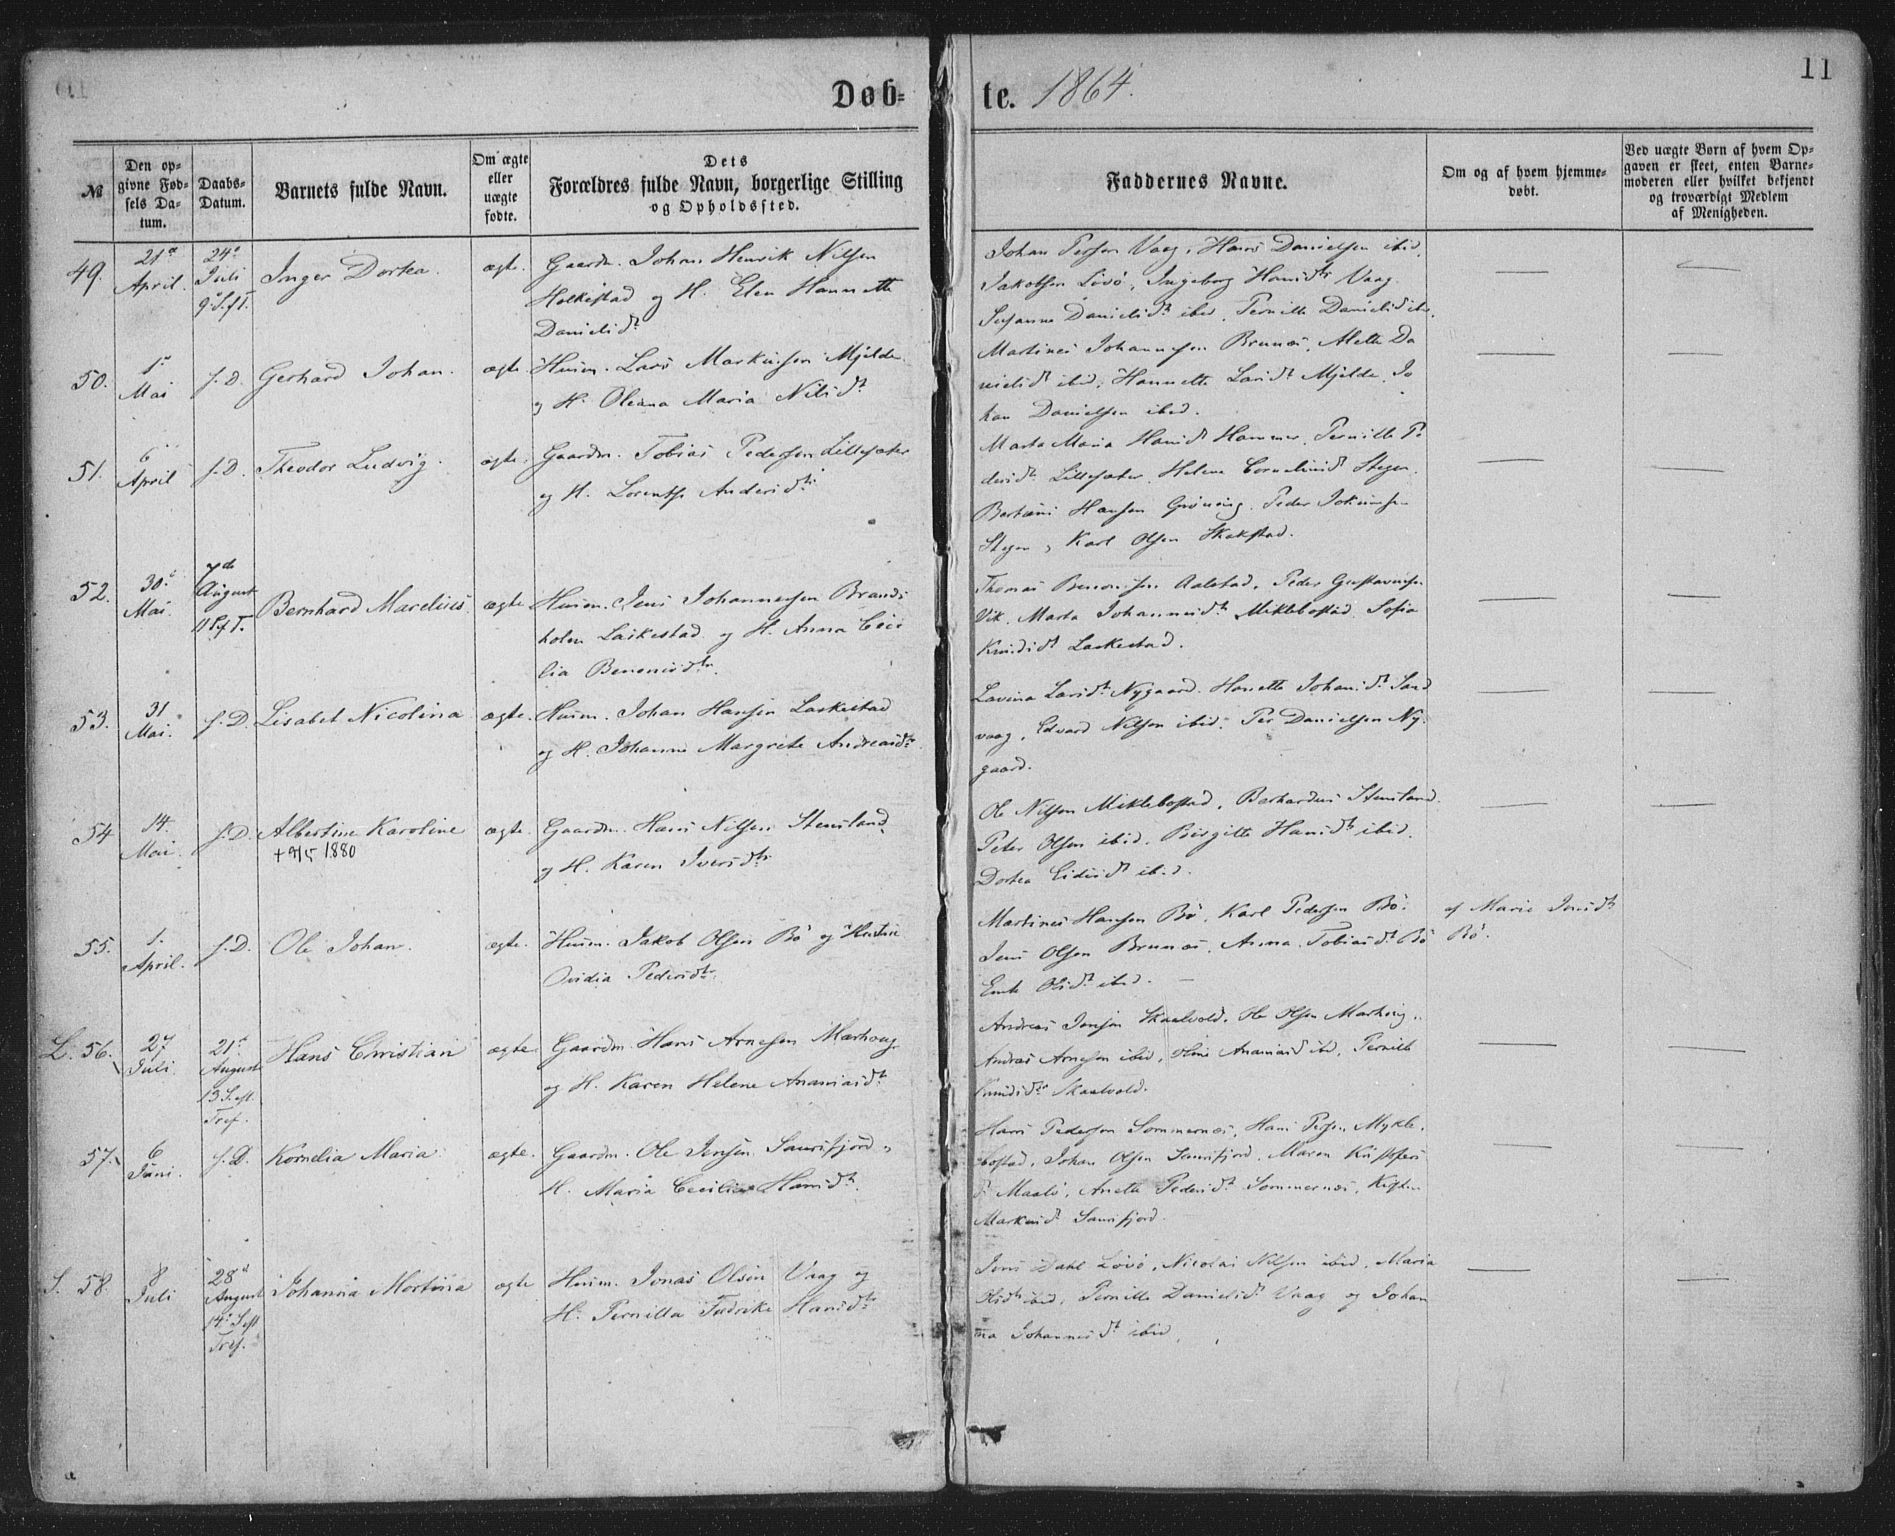 11
Døb= te. 1864.
№
Den op=
givne Fød=
sels Da=
tum.
Daabs=
Datum.
Barnets fulde Navn.
Om ægte
eller
uægte
fødte.
Dets
Forældres fulde Navn, borgerlige Stilling
og Opholdssted.
Faddernes Navne.
Om og af hvem hjemme=
døbt.
Ved uægte Børn af hvem Op=
gaven er skeet, enten Barne=
moderen eller hvilket bekjendt
og troværdigt Medlem
af Menigheden.
49. 21de April. 24de Juli Inger Dortea. ægte. Gaardm. Johan Henrik Nilsen
Holkestad og H. Elen Hannette
Danielsdtr
Johan Persen Vaag, Hans Danielsen ibid,
Jakobsen Lövö, Ingeborg Hansdtr Vaag.
Susanne Danielsdtr ibid, Pernille Danielsd ibid.
50. 1ste Mai f. D. Gerhard Johan. ægte Huusm. Lars Markussen Mjelde
og H. Oleana Maria Nilsdtr
Martines Johannesen Brunæs, Alette Da
nielsdtr ibid, Hannette Larsdtr Mjelde, Jo
han Danielsen ibid.
51. 6 April f. D. Theodor Ludvig. ægte. Gaardm. Tobias Pedersen Lillesæter
og H. Lorentse Andersdtr
Marta Maria Hansdtr Hammer, Pernille Pe
dersdtr Lillesæter, Helene Corneliusdtr Stegen.
Hansen Gröning. Peder Jokumsen
Stegen, Karl Olsen Skakstad.
52. 30te Mai. 7de August Bernhard Marelius. ægte Huusm. Jens Johannesen Brands
holm Laskestad og H. Anna Ceci
lia Benonisdtr.
Thomas Benonisen Aalstad, Peder Gustavusen
Vik, Marta Johannesdtr Miklebostad, Sofia
Knudsdtr Laskestad.
53. 31 Mai. f. D. Lisabet Nicolina ægte. Huusm. Johan Hansen Laskestad
og H. Johanne Margrete Andreasdtr
Lavina Larsdtr Nygaard. Hanette Johansdtr Sand
vaag, Edvard Nilsen ibid. Per Danielsen Ny-
gaard.
54 14. Mai. f. D. Albertine Karoline ægte. Gaardm. Hans Nilsen Stensland,
+ 9/5 1880
og H. Karen Iversdtr
Ole Nilsen Miklebostad, Stensland.
Peter Olsen ibid. Birgitte Hansdtr ibid.
Dortea ibid.
55. 1. April. f. D. Ole Johan. ægte. Huusm. Jakob Olsen Bö og Hustrue
Ovidia Pedersdtr.
Martines Hansen Bö, Karl Pedersen Bö.
Jens Olsen Brunæs, Anna Tobiasdtr Bö
Olsdtr ibid.
af Marie Jensdtr
Bö.
L. 56. 27 Juli. 21de August Hans Christian ægte. Gaardm. Hans Arnesen Marhoug
13 S. eft.
Tref.
og H. Karen Helene Ananiasdtr
Andreas Jensen Skaalvold, Ole Olsen Marhoug,
Andreas Arnesen ibid, Oline Ananiasd ibid, Pernille
Knudsdtr Skaalvold.
57. 6 Juni. f. D. Kornelia Maria. ægte. Gaardm. Ole Jensen Saursfjord,
H. Maria Cecilia Hansdtr.
Hans Pedersen Sommernæs, Hans Persen Mykle-
bostad, Johan Olsen Saursfjord, Maren Kristofers
d. Maalö, Anette Pedersdtr Sommernæs,
Markusdtr Saursfjord.
S. 58. 8 Juli 28de August Johanna Mortina ægte Huusm. Jonas Olsen Vaag og
14de S. eft
Tref.
H. Pernilla Fredrike Hansdtr
Jens Dahl Lövö, Nicolai Nilsen ibid, Maria
Olsdtr ibid, Pernille Danielsdtr Vaag og Johan
na Johannesdtr ibid.